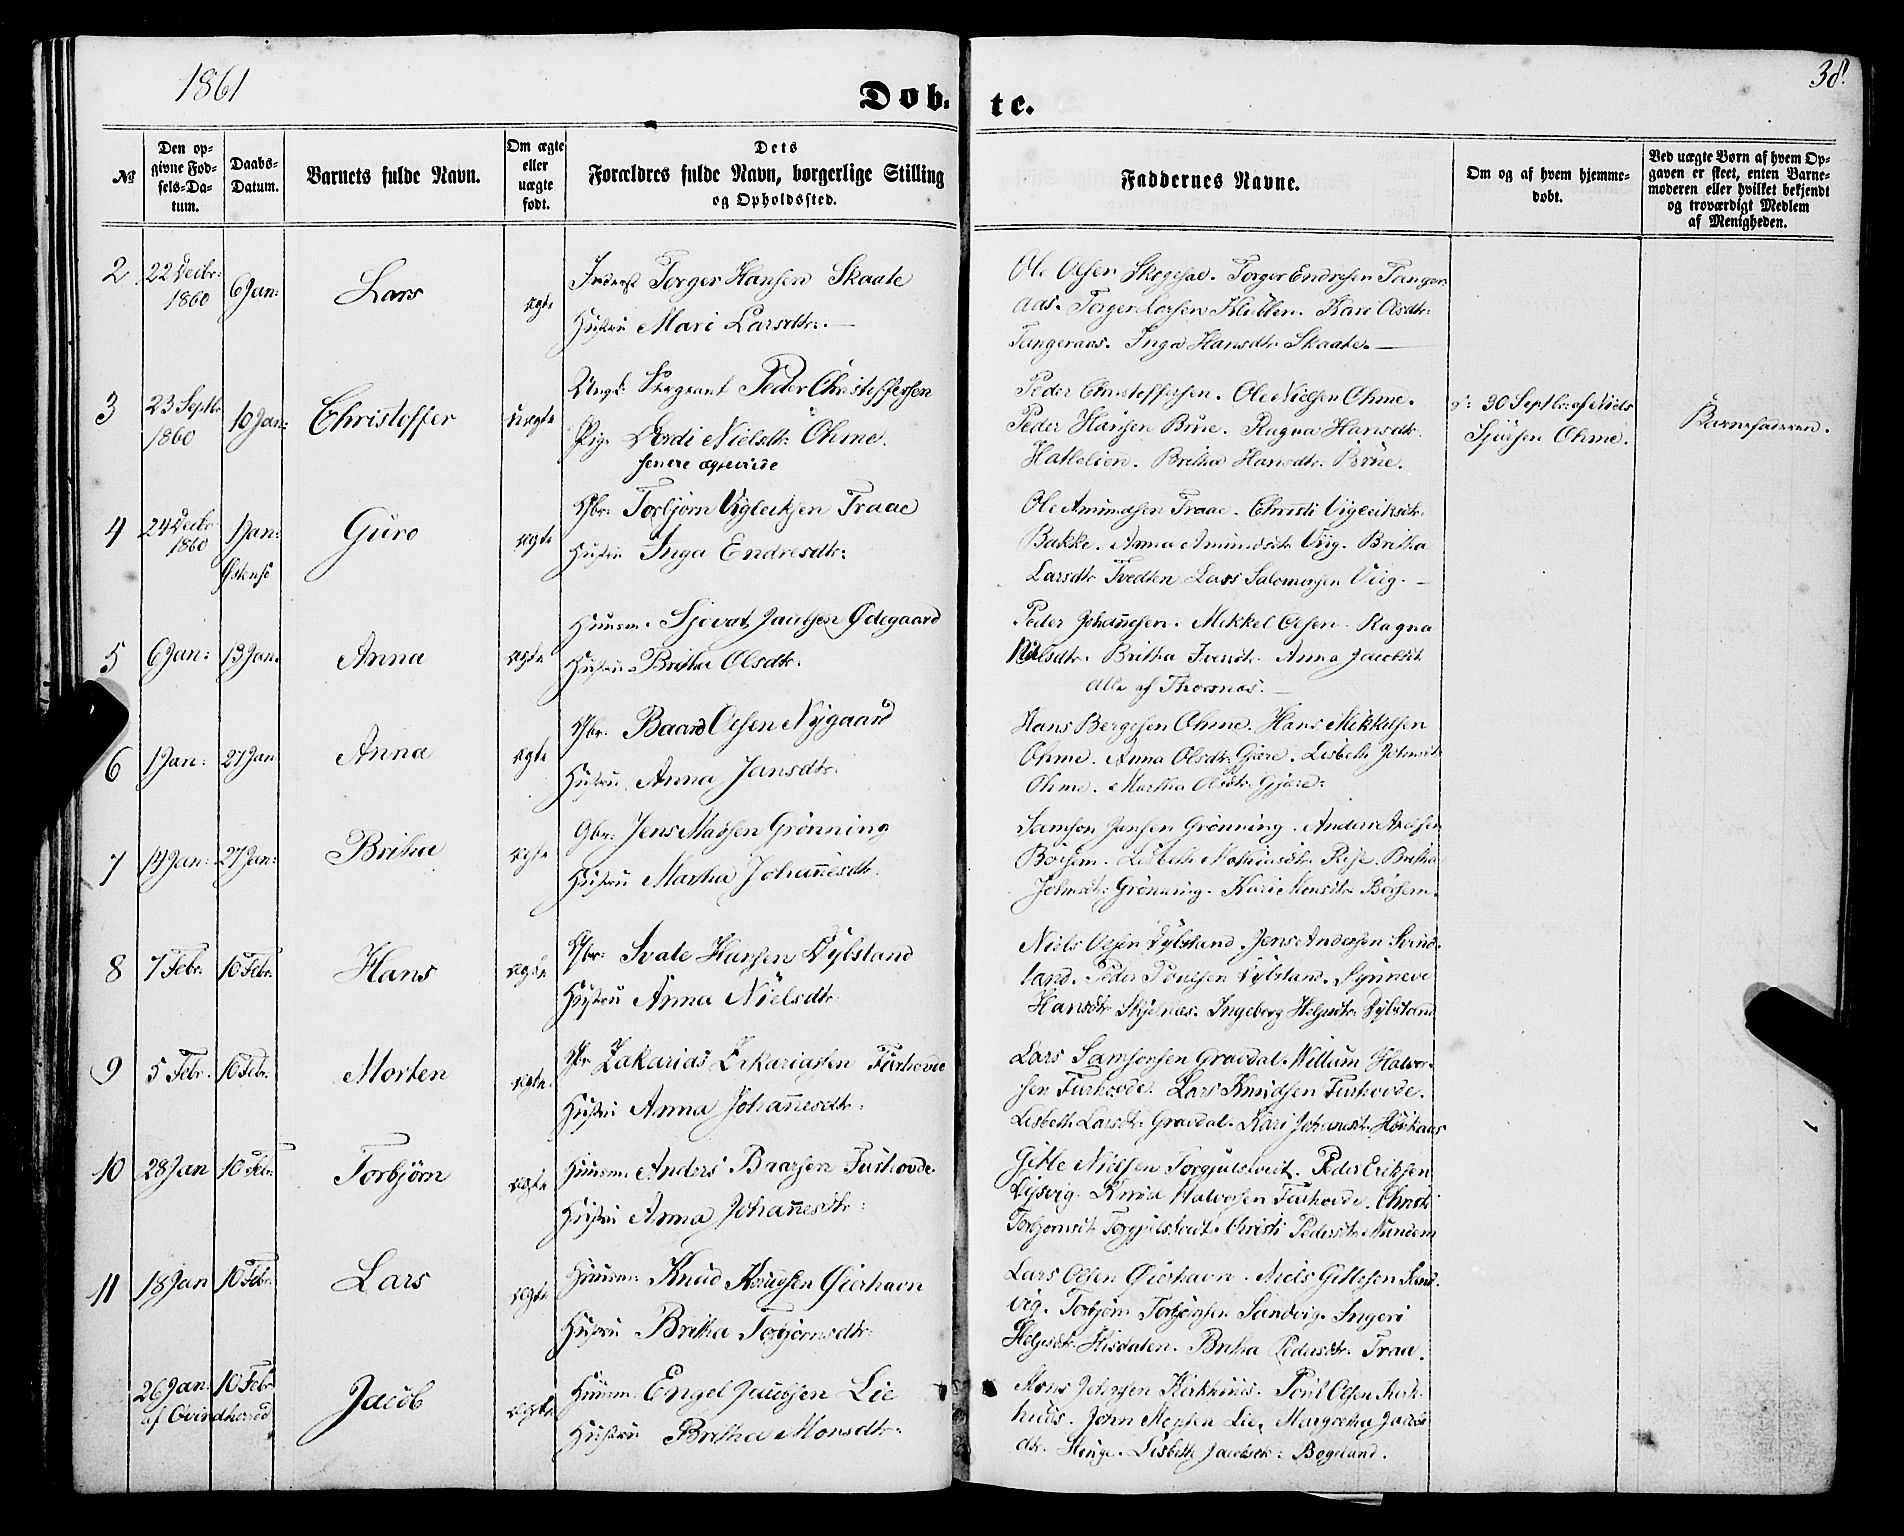 1861
38.
Døb-
te.
№
Den op-
givne Fød-
sels-Da-
tum.
Daabs-
Datum.
Barnets fulde Navn.
Om ægte
eller
uægte
født.
Dets
Forældres fulde Navn, borgerlige Stilling
og Opholdssted.
Faddernes Navne.
Om og af hvem hjemme-
døbt.
Ved uægte Børn af hvem Op-
gaven er skeet, enten Barne-
moderen eller hvilket bekjendt
og troværdigt Medlem
af Menigheden.
2
22 Decbr:
1860
6 Jan:
Lars
ægte
Torger Hansen Skaate
Hustru Mari Larsdtr: —
Ole Olsen Skogesal. Torger Endresen Tanger-
aas. Torger Larsen Kletten. Kari Olsdtr:
Tangeraas. Inga Hansdtr. Skaate. —
3
23 Septbr
1860
10 Jan:
Christoffer
uægte
Ungk. Sergeant Peder Christoffersen
Pig. Gordi Nielsdtr: Ohme.
senere ægteviede
Peder Christoffersen. Ole Nielsen Ohme.
Peder Hansen Brue. Ragna Hansdtr.
Hatlelien. Britha Hansdtr. Brue.
30 Septbr: af Niels
Sjursen Ohme.
Barnefaderen.
4
24 Decbr
1860
1 Jan:
Østensø
Guro
ægte
Gbr: Torbjørn Vigleiksen Traae
Hustru Inga Endresdtr:
Ole Amundsen Traae. Christi Vigleiksdtr.
Bakke. Anna Amundsdtr Viig. Britha
Larsdtr Tvedten Lars Salomonsen Viig. —
5
6 Jan:
13 Jan.
Anna
ægte
Huusm. Sjovat Jacobsen Ødegaard
Hustru Britha Olsdtr:
Peder Johannesen. Mikkel Olsen. Ragna
Nilsdtr. Britha Iversdtr. Anna Jacobsdt
alle af Thorsnæs. —
6
1 Jan:
27 Jan
Anna
ægte
Gbr. Baard Olsen Nygaard
Hustru Anna Jansdtr.
Hans Bergesen Ohme. Hans Mikkelsen
Ohme. Anna Olsdtr: Gjøre. Lisbeth Johnsdtr
Ohme. Martha Olsdtr: Gjøre.
7
14 Jan:
27 Jan:
Britha
ægte
Gbr: Jens Madsen Grønning
Hustru Martha Johannesdtr.
Samson Jansen Grønning. Anders Axelsen
Børsem. Lisbeth Mathiasdtr. Rise. Britha
Johnsdtr: Grønning. Kari Monsdtr Børsem.
8
7 Febr.
10 Febr.
Hans
ægte
Gbr: Ivale Hansen Dybsland
Hustru Anna Nielsdtr:
Niels Olsen Dybsland. Jens Andersen Svind-
land. Peder Poulsen Dybsland. Synneve
Hansdtr Skjelnæs. Ingeborg Helgesdtr: Dybsland
9
5 Febr.
10 Febr.
Morten
ægte.
Gbr Zakarias Zakariasen Furhovde
Hustru Anna Johannesdtr:
Lars Samsonsen Gravdal. Willum Halvor-
sen Furhovde. Lars Knudsen Furhovde.
Lisbeth Larsdtr. Gravdal. Kari Johannesdtr.
10
28 Jan
10 Febr.
Torbjørn
ægte
Huusm. Anders Baarsen Furhovde.
Hustru Anna Johannesdtr:
Gitle Nielsen Torgjulstveit. Peder Eriksen
Lysvig. Knud Halvorsen Furhovde. Christi
Torbjørnsdt Torgjulstveit. Christi Pedersdtr.
11
18 Jan
10 Febr.
Lars
ægte
Huusm: Knud Knudsen Øierhavn
Hustru Britha Torbjørnsdtr:
Lars Olsen Øierhavn. Niels Gitlesen Sand-
vig. Torbjørn Torbjørnsen Sandvig. Ingeri
Helgesdtr Hisdalen. Britha Pedersdtr. Traa.
26 Jan:
10 Febr
af Qvindherred
Jacob
ægte
Huusm: Engel Jacobsen Lie
Hustru Britha Monsdtr:
Mons Johnsen Kirkhuus. Poul Olsen Kirk-
huus. John Monsen Lie. Margretha Jacobs
dtr. Lisbeth Jacobsdtr: Bogeland.